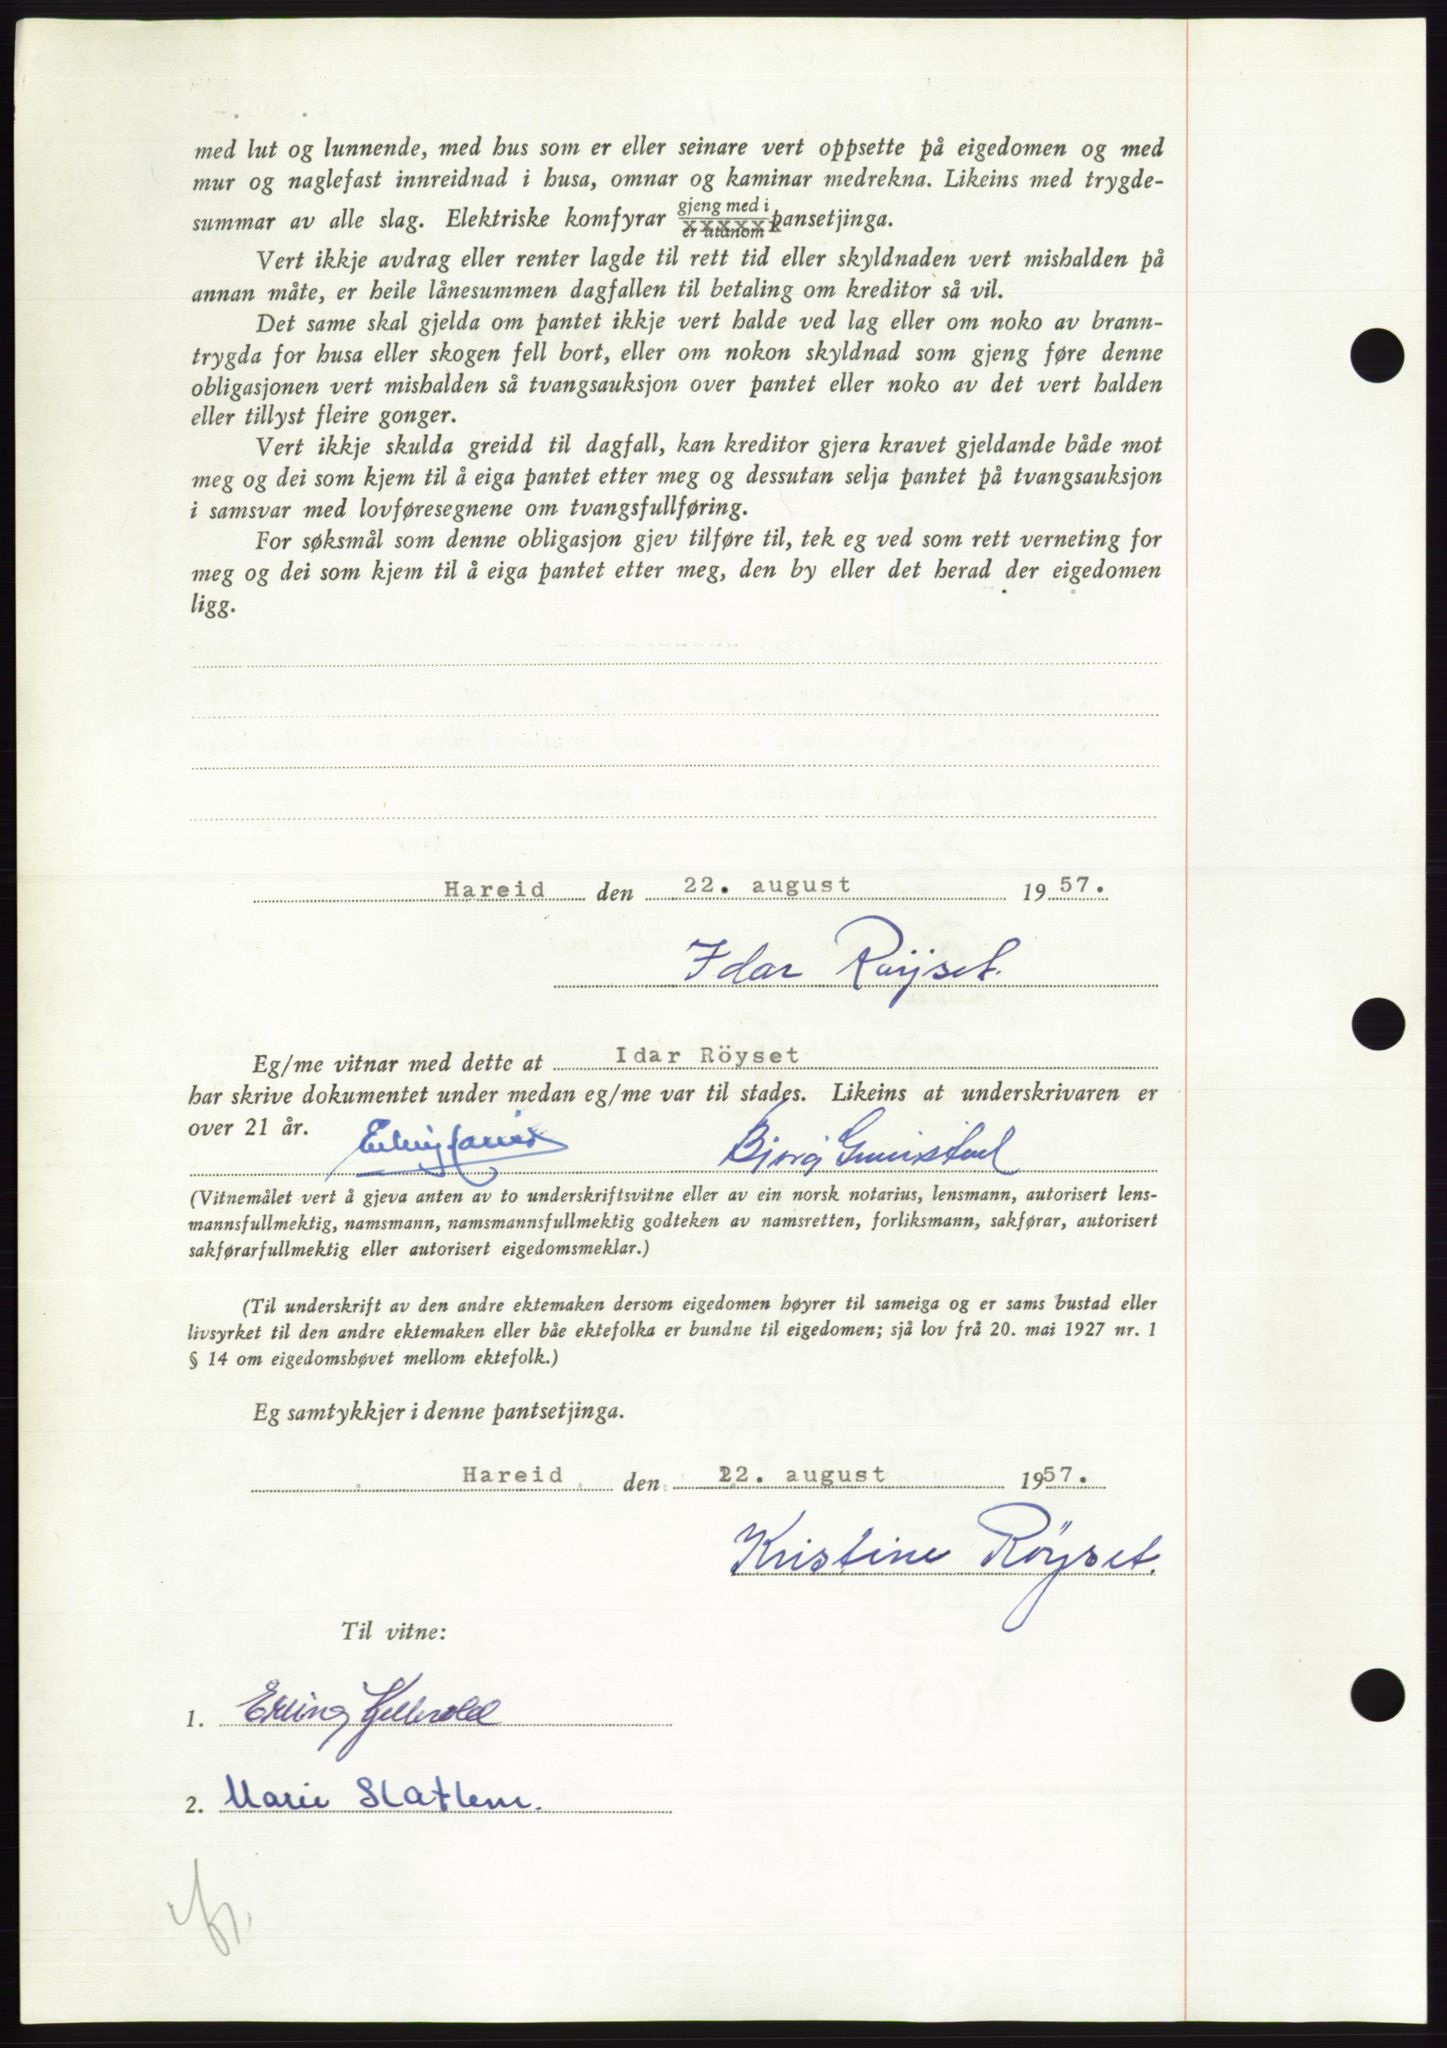 med lut og lunnende, med hus som er eller seinare vert oppsette på eigedomen og med
mur og naglefast innreidnad i husa, omnar og kaminar medrekna. Likeins med trygde-
summar av alle slag. Elektriske komfyrar gjeng med i / er utanom pansetjinga.
Vert ikkje avdrag eller renter lagde til rett tid eller skyldnaden vert mishalden på
annan måte, er heile lånesummen dagfallen til betaling om kreditor så vil.
Det same skal gjelda om pantet ikkje vert halde ved lag eller om noko av brann-
trygda for husa eller skogen fell bort, eller om nokon skyldnad som gjeng føre denne
obligasjonen vert mishalden så tvangsauksjon over pantet eller noko av det vert halden
eller tillyst fleire gonger.
Vert ikkje skulda greidd til dagfall, kan kreditor gjera kravet gjeldande både mot
meg og dei som kjem til å eiga pantet etter meg og dessutan selja pantet på tvangsauksjon
i samsvar med lovføresegnene om tvangsfullføring.
For søksmål som denne obligasjon gjev tilføre til, tek eg ved som rett verneting for
meg og dei som kjem til å eiga pantet etter meg, den by eller det herad der eigedomen
ligg.
Hareid den 22. august 1957.
Idar Røyset.
Eg/me vitnar med dette at Idar Röyset
har skrive dokumentet under medan eg/me var til stades. Likeins at underskrivaren er
over 21 år.
Bjorg
(Vitnemålet vert å gjeva anten av to underskriftsvitne eller av ein norsk notarius, lensmann, autorisert lens-
mannsfullmektig, namsmann, namsmannsfullmektig godteken av namsretten, forliksmann, sakførar, autorisert
sakførarfullmektig eller autorisert eigedomsmeklar.)
(Til underskrift av den andre ektemaken dersom eigedomen høyrer til sameiga og er sams bustad eller
livsyrket til den andre ektemaken eller båe ektefolka er bundne til eigedomen; sjå lov frå 20. mai 1927 nr. 1
§ 14 om eigedomshøvet mellom ektefolk.)
Eg samtykkjer i denne pantsetjinga.
Hareid den 22. august 1957.
Kristine Röyset.
Til vitne:
1. Erling Hjellvold
2. Marie Slatlem.